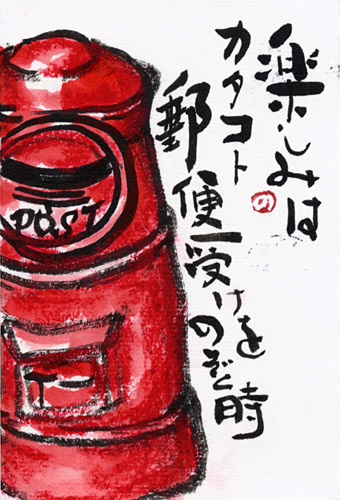 楽しみは
カタコト
郵便受けを
のぞく時
の
POST